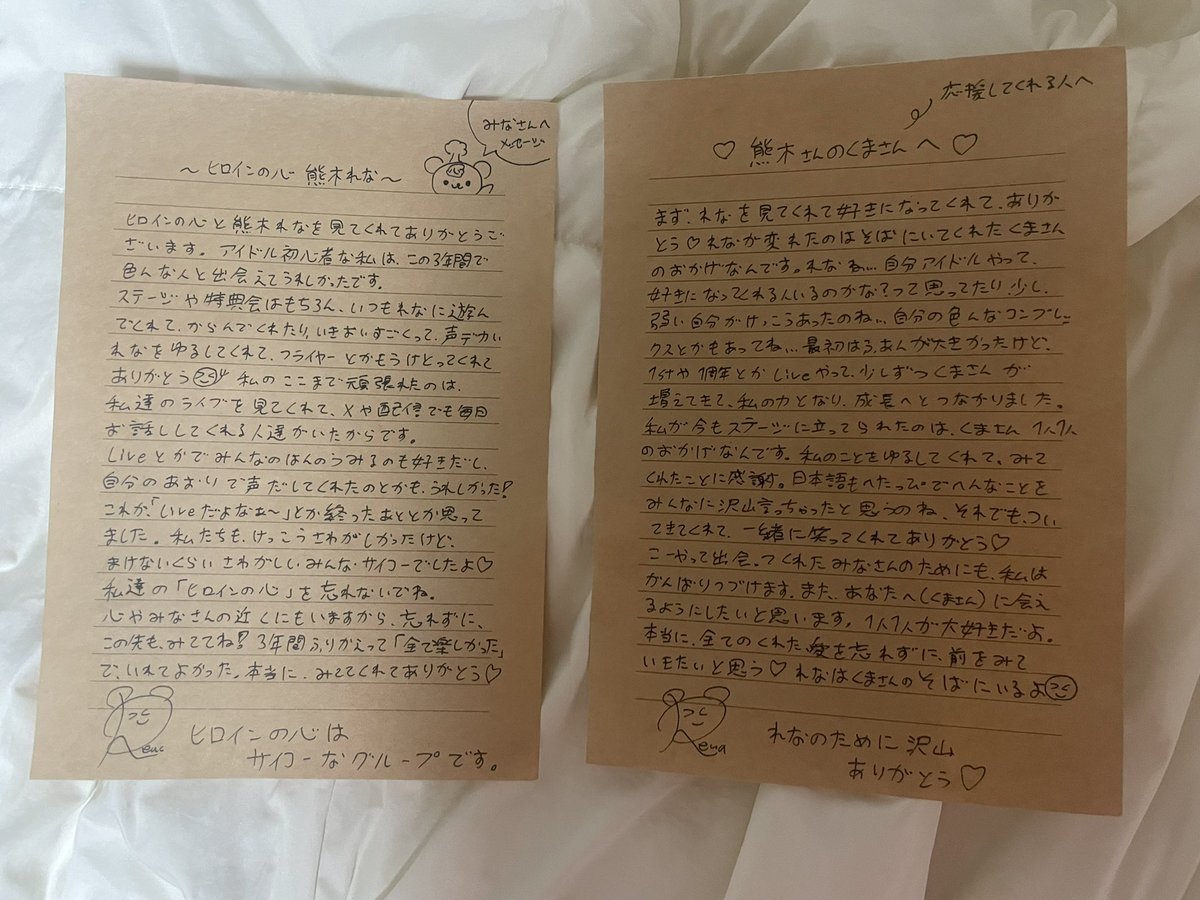 みなさんへ
メッセージ
〜ヒロインの心 熊木れな〜
ヒロインの心と熊木れなを見てくれてありがとうご
ざいます。アイドル初心者な私は、この3年間で
色んな人と出会えてうれしかったです。
ステージや特典会はもちろん、いつもれなに遊ん
でくれて、からんでくれたり、いきおいすごくって、声デカい
れなをゆるしてくれて、フライヤーとかもうけとってくれて
ありがとう 私のここまで頑張れたのは、
私達のライブを見てくれて、Xや配信でも毎日
お話ししてくれる人達がいたからです。
Liveとかでみんなのはんのうみるのも好きだし、
自分のあおりで声だしてくれたのとかも、うれしかった!
これが、「Liveだよなぁ〜」とか終ったあととか思って
ました。私たちも、けっこうさわがしかったけど、
まけないくらいさわがしいみんなサイコーでしたよ♡
私達の「ヒロインの心」を忘れないでね。
心やみなさんの近くにもいますから、忘れずに、
この先も、みててね!3年間ふりかえって「全て楽しかった」
で、いれてよかった。本当に、みててくれてありがとう♡
Rena
ヒロインの心は
サイコーなグループです。
応援してくれる人へ
♡ 熊木さんのくまさんへ ♡
まず、れなを見てくれて好きになってくれて、ありが
とう♡れなが変れたのはそばにいてくれたくまさん
のおかげなんです。れなね…自分アイドルやって、
好きになってくれる人いるのかな?って思ってたり、少し、
弱い自分がけっこうあったのね…自分の色んなコンプレッ
クスとかもあってね…最初はふあんが大きかったけど、
1stや1周年とかLiveやって、少しずつくまさんが
増えてきて、私の力となり、成長へとつながりました。
私が今もステージに立ってられたのは、くまさん1人1人
のおかげなんです。私のことをゆるしてくれて、みて
くれたことに感謝。日本語もへたっぴでへんなことを
みんなに沢山言っちゃったと思うのね、それでも、つい
てきてくれて、一緒に笑ってくれてありがとう♡
こーやって出会ってくれたみなさんのためにも、私は
がんばりつづけます。また、あなたへ(くまさん)に会え
るようにしたいと思います。1人1人が大好きだよ。
本当に、全てのくれた、愛を忘れずに、前をみて
いきたいと思う♡ れなはくまさんのそばにいるよ
Rena
れなのために沢山
ありがとう♡